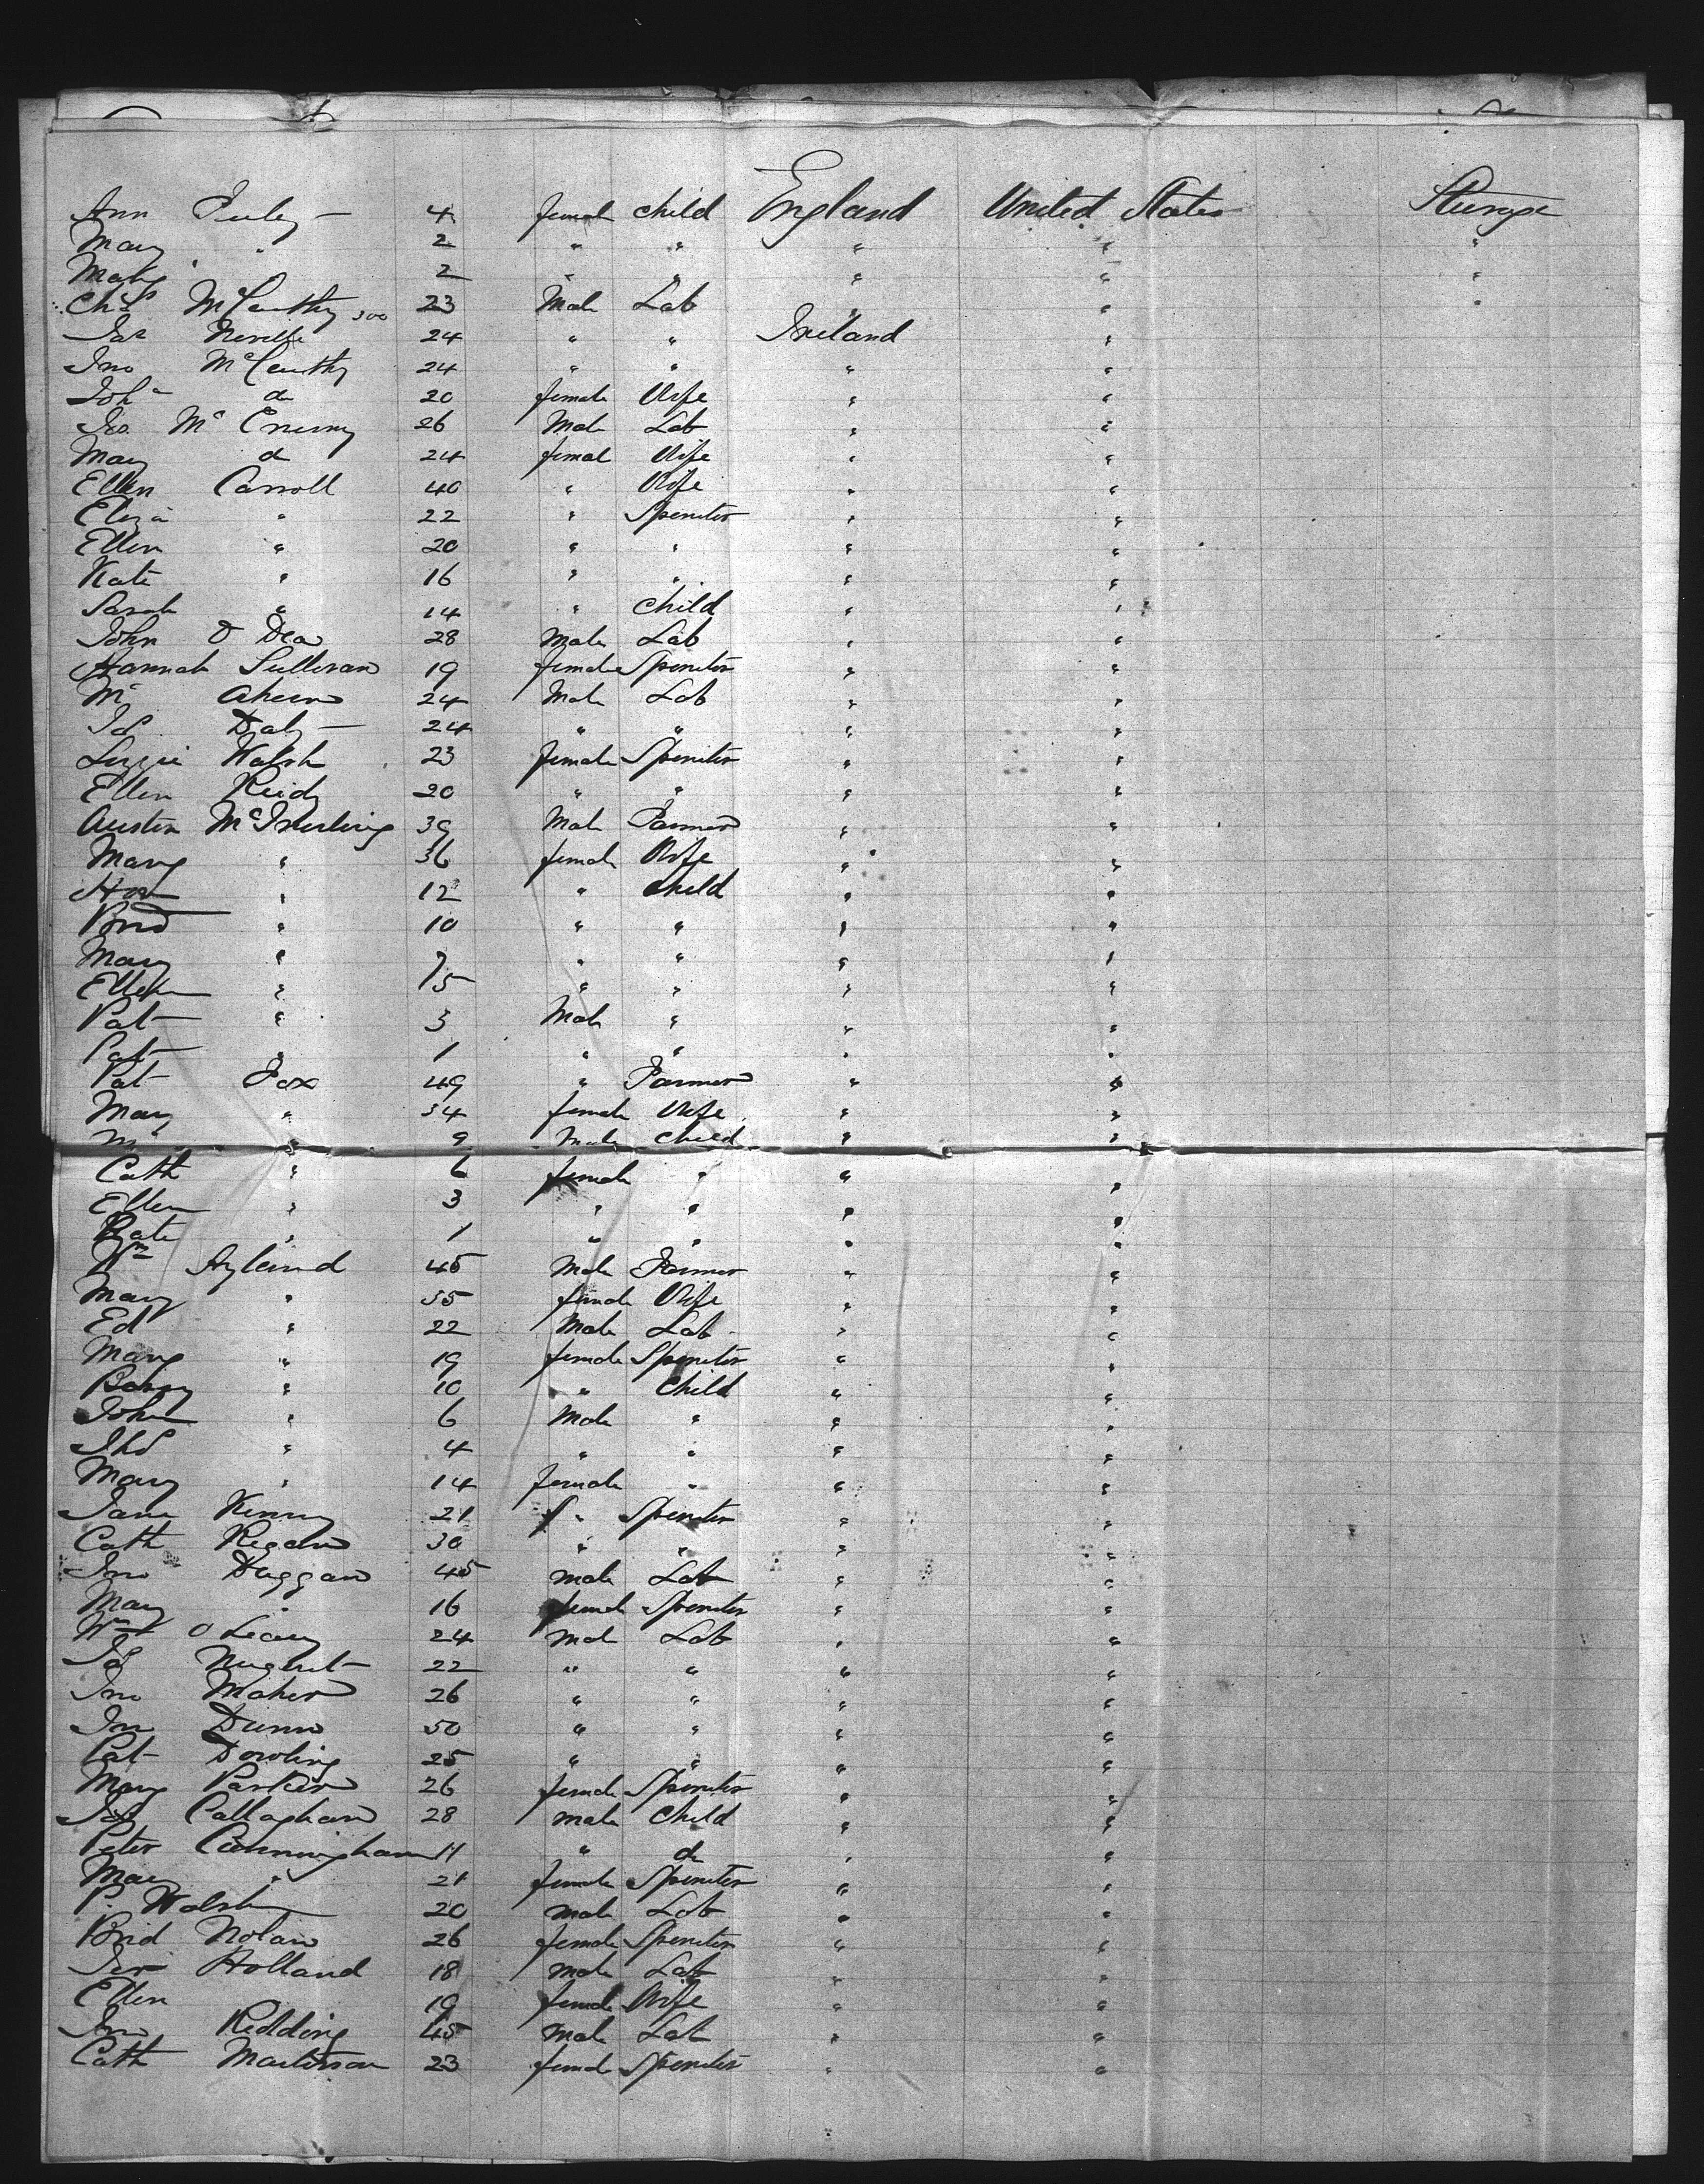 Ann 4 female child England United States
Mary " 2 " " " " "
" 2 " " " " "
Chas McCarthy 300 23 Male Lab " " "
Jas Neville 24 " " Ireland "
Jno McCarthy 24 " " " "
Joha do 20 female Wife " "
Mc Enerny 26 Male Lab " "
Mary do 24 femal Wife " "
Ellen Carroll 40 " Wife " "
Eliza " 22 " Spinster " "
Ellen " 20 " " " "
Kate " 16 " " " "
Sarah " 14 " Child " "
John O Dea 28 Male Lab " "
Hannah Sullivan 19 female Spinster " "
Ml Ahern 24 Male Lab " "
Jas Daly 24 " " " "
Lizzie Walsh 23 female Spinster " "
Ellen Reidy 20 " " " "
Austin 39 Male Farmer " "
Mary " 36 female Wife " "
" 12 " Child " "
Brid " 10 " " " "
Mary " 7 " " " "
Ellen " 5 " " " "
Pat " 3 Male " " "
Pat " 1 " " " "
Pat Fox 49 " Farmer " "
Mary " 34 female Wife " "
" 9 Male Child " "
Cath " 6 female " " "
Ellen " 3 " " " "
Kate " 1 " " " "
Wm Hyland 45 Male Farmer " "
Mary " 35 female Wife " "
Ed " 22 Male Lab " "
Mary " 19 female Spinster " "
" 10 " Child " "
John " 6 Male " " "
Thos " 4 " " " "
Mary " 14 female " " "
Jane Kenny 21 f " Spinster " "
Cath Regan 30 " " " "
Jno Duggan 45 male Lab " "
Mary " 16 female Spinster " "
Wm O Leary 24 male Lab " "
Jas Nugent 22 " " " "
Jno Maher 26 " " " "
Jno Dunn 50 " " " "
Pat Dowling 25 " " " "
Mary Parker 26 female Spinster " "
Jas Callaghan 28 male Child " "
Peter Cunningham 11 " do " "
Mary " 21 female Spinster " "
P. Walsh 20 male Lab " "
Brid Nolan 26 female Spinster " "
Jer Holland 18 male Lab " "
Ellen 19 female Wife " "
Jno Redding 45 male Lab " "
Cath 23 female Spinster " "